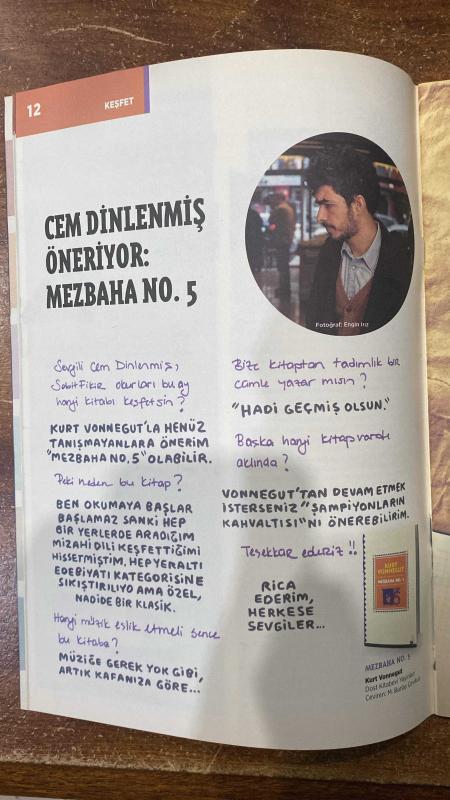 12
KEŞFET
CEM DİNLENMİŞ
ÖNERİYOR:
MEZBAHA NO. 5
Fotoğraf: Engin Irız
Sevgili Cem Dinlenmiş,
SabitFikir okurları bu ay
hangi kitabı keşfetsin?
KURT VONNEGUT'LA HENÜZ
TANIŞMAYANLARA ÖNERİM
"MEZBAHA NO. 5" OLABİLİR.
Peki neden bu kitap?
BEN OKUMAYA BAŞLAR
BAŞLAMAZ SANKİ HEP
BİR YERLERDE ARADIĞIM
MİZAHİ DİLİ KEŞFETTİĞİMİ
HİSSETMİŞTİM. HEP YERALTI
EDEBİYATI KATEGORİSİNE
SIKIŞTIRILIYO AMA ÖZEL,
NADİDE BİR KLASİK.
Hangi müzik eşlik etmeli sence
bu kitaba?
MÜZİĞE GEREK YOK GİBİ,
ARTIK KAFANIZA GÖRE...
Bize kitaptan tadımlık bir
cümle yazar mısın?
"HADİ GEÇMİŞ OLSUN."
Başka hangi kitap vardı
aklında?
VONNEGUT'TAN DEVAM ETMEK
İSTERSENİZ "ŞAMPİYONLARIN
KAHVALTISI"NI ÖNEREBİLİRİM.
Teşekkür ederiz!!
RİCA
EDERİM,
HERKESE
SEVGİLER...
KURT
VONNEGUT
MEZBAHA NO. 5
Kurt Vonnegut
Dost Kitabevi Yayınları
Çeviren: M. Barlas